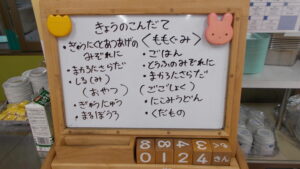 きょうのこんだて
・ぎゅうにくとあつあげの
みぞれに
・まかろにさらだ
・しる(み)
(おやつ)
・ぎゅうにゅう
・まるぼうろ
<ももぐみ>
・ごはん
・とうふのみぞれに
・まかろにさらだ
(ごごしょく)
・にこみうどん
・くだもの